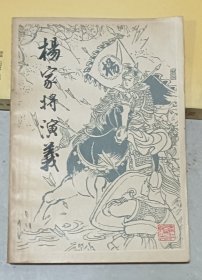 楊家將演義
楊